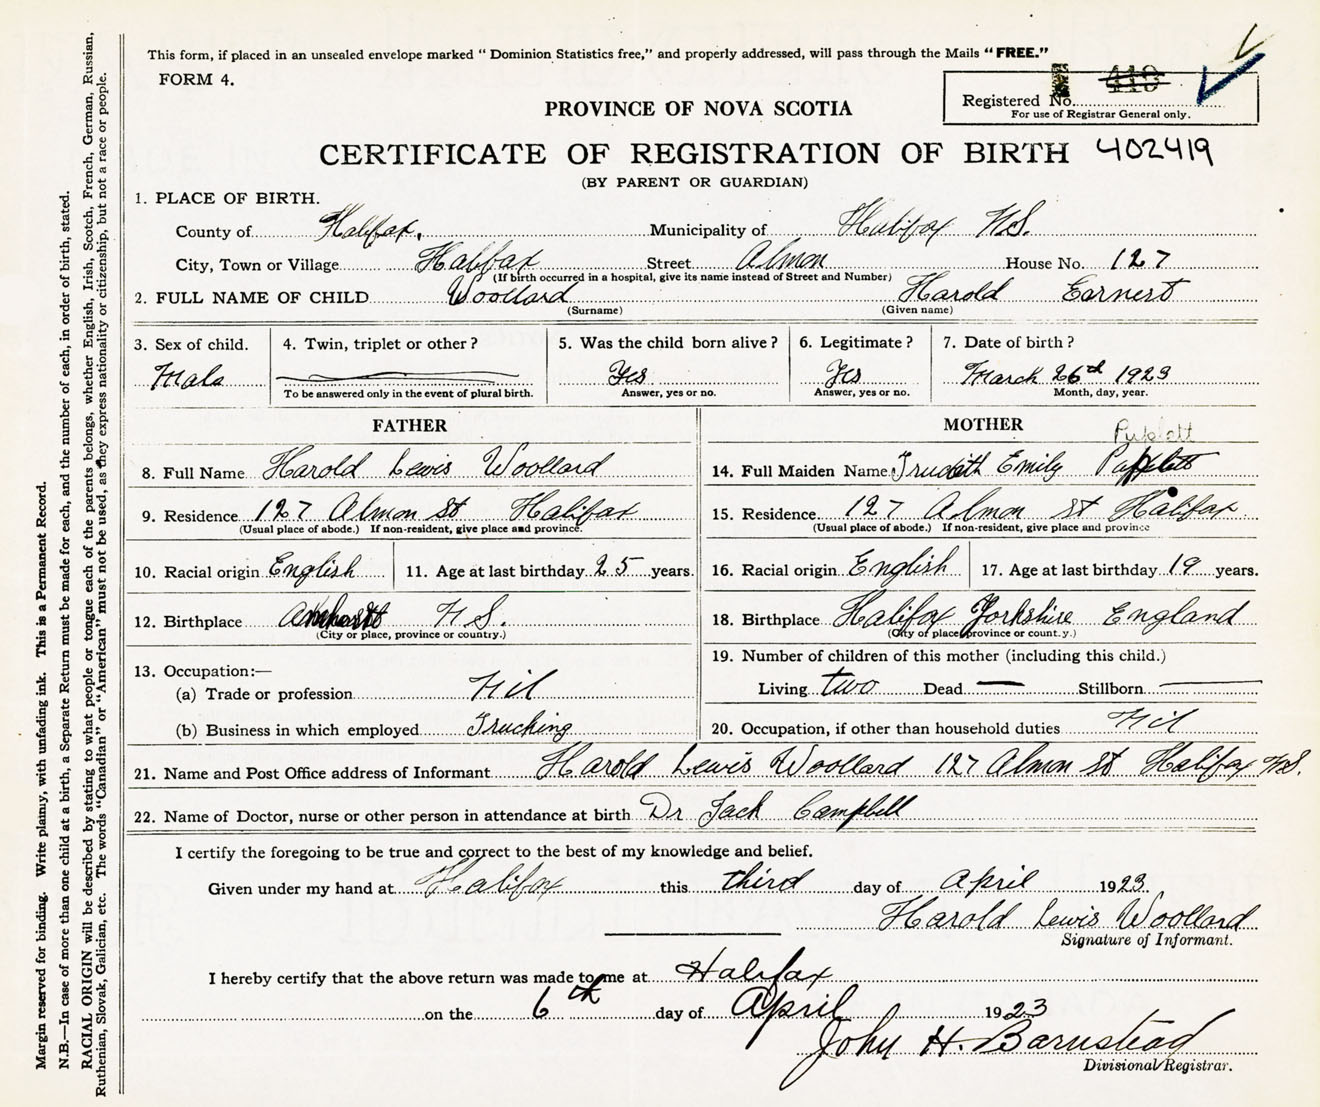 This form, if placed in an unsealed envelope marked " Dominion Statistics free," and properly addressed, will pass through the Mails "FREE."
FORM 4.
419
Registered No.
For use of Registrar General only.
PROVINCE OF NOVA SCOTIA
CERTIFICATE OF REGISTRATION OF BIRTH 402419
(BY PARENT OR GUARDIAN)
1. PLACE OF BIRTH.
County of Halifax, Municipality of Halifax N.S.
City, Town or Village Halifax Street Almon House No. 127
(If birth occurred in a hospital, give its name instead of Street and Number)
2. FULL NAME OF CHILD Woollard Harold Earnest
(Surname) (Given name)
3. Sex of child. 4. Twin, triplet or other? 5. Was the child born alive? 6. Legitimate? 7. Date of birth?
Male Yes Yes March 26th 1923
To be answered only in the event of plural birth. Answer, yes or no. Answer, yes or no. Month, day, year.
FATHER
8. Full Name Harold Lewis Woollard
9. Residence 127 Almon St Halifax
(Usual place of abode.) If non-resident, give place and province.
10. Racial origin English 11. Age at last birthday 25 years.
12. Birthplace Amherst N.S.
(City or place, province or country.)
13. Occupation:—
(a) Trade or profession Nil
(b) Business in which employed Trucking
MOTHER
14. Full Maiden Name Emily
15. Residence 127 Almon St Halifax
(Usual place of abode.) If non-resident, give place and province
16. Racial origin English 17. Age at last birthday 19 years.
18. Birthplace Halifax Yorkshire England
(City or place province or count.y.)
19. Number of children of this mother (including this child.)
Living two Dead Stillborn
20. Occupation, if other than household duties Nil
21. Name and Post Office address of Informant Harold Lewis Woollard 127 Almon St Halifax N.S.
22. Name of Doctor, nurse or other person in attendance at birth Dr Jack Campbell
I certify the foregoing to be true and correct to the best of my knowledge and belief.
Given under my hand at Halifax this third day of April 1923.
Harold Lewis Woollard
Signature of Informant.
I hereby certify that the above return was made to me at Halifax
on the 6th day of April 1923
John H. Barnstead
Divisional Registrar.
Margin reserved for binding. Write plainly, with unfading ink. This is a Permanent Record.
N.B.—In case of more than one child at a birth, a Separate Return must be made for each, and the number of each, in order of birth, stated.
RACIAL ORIGIN will be described by stating to what people or tongue each of the parents belongs, whether English, Irish, Scotch, French, German, Russian,
Ruthenian, Slovak, Galician, etc. The words "Canadian" or "American" must not be used, as they express nationality or citizenship, but not a race or people.